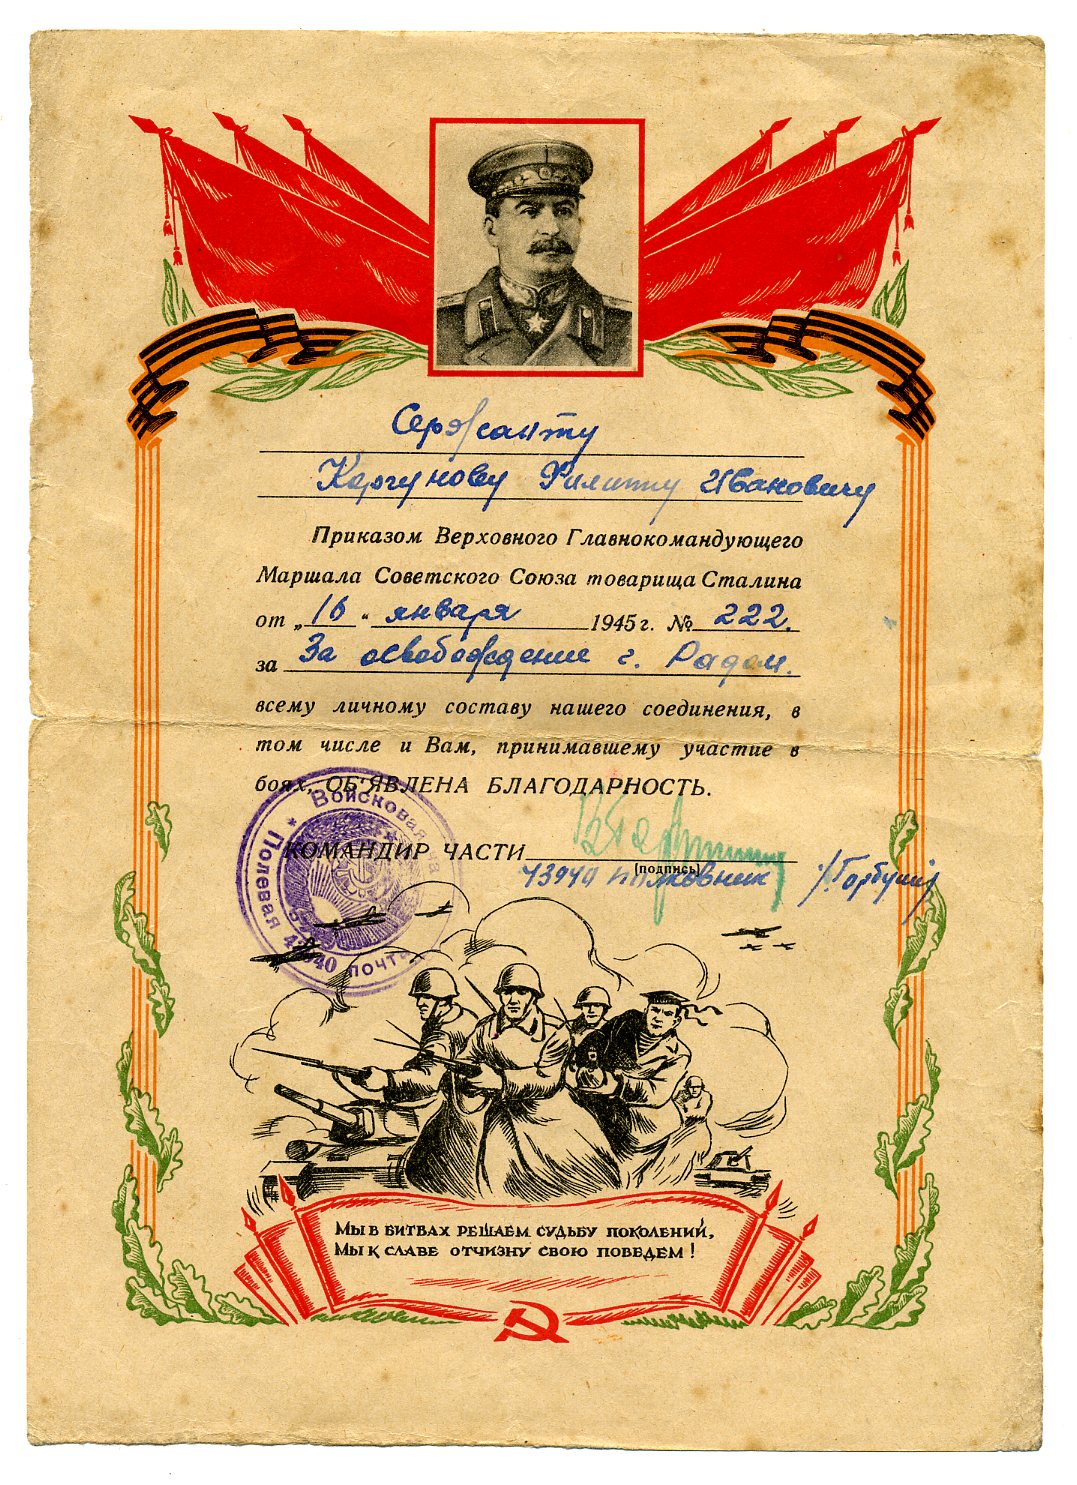 Сержанту
Каргунову Филиппу Ивановичу
Приказом Верховного Главнокомандующего
Маршала Советского Союза товарища Сталина
от „16“ января 1945 г. № 222.
за За освобождение г. Радом.
всему личному составу нашего соединения, в
том числе и Вам, принимавшему участие в
боях, ОБ'ЯВЛЕНА БЛАГОДАРНОСТЬ.
КОМАНДИР ЧАСТИ
(подпись)
43940 полковник /Горбунов/
Войсковая часть
Полевая почта 43940
Мы в битвах решаем судьбу поколений,
Мы к славе отчизну свою поведем!